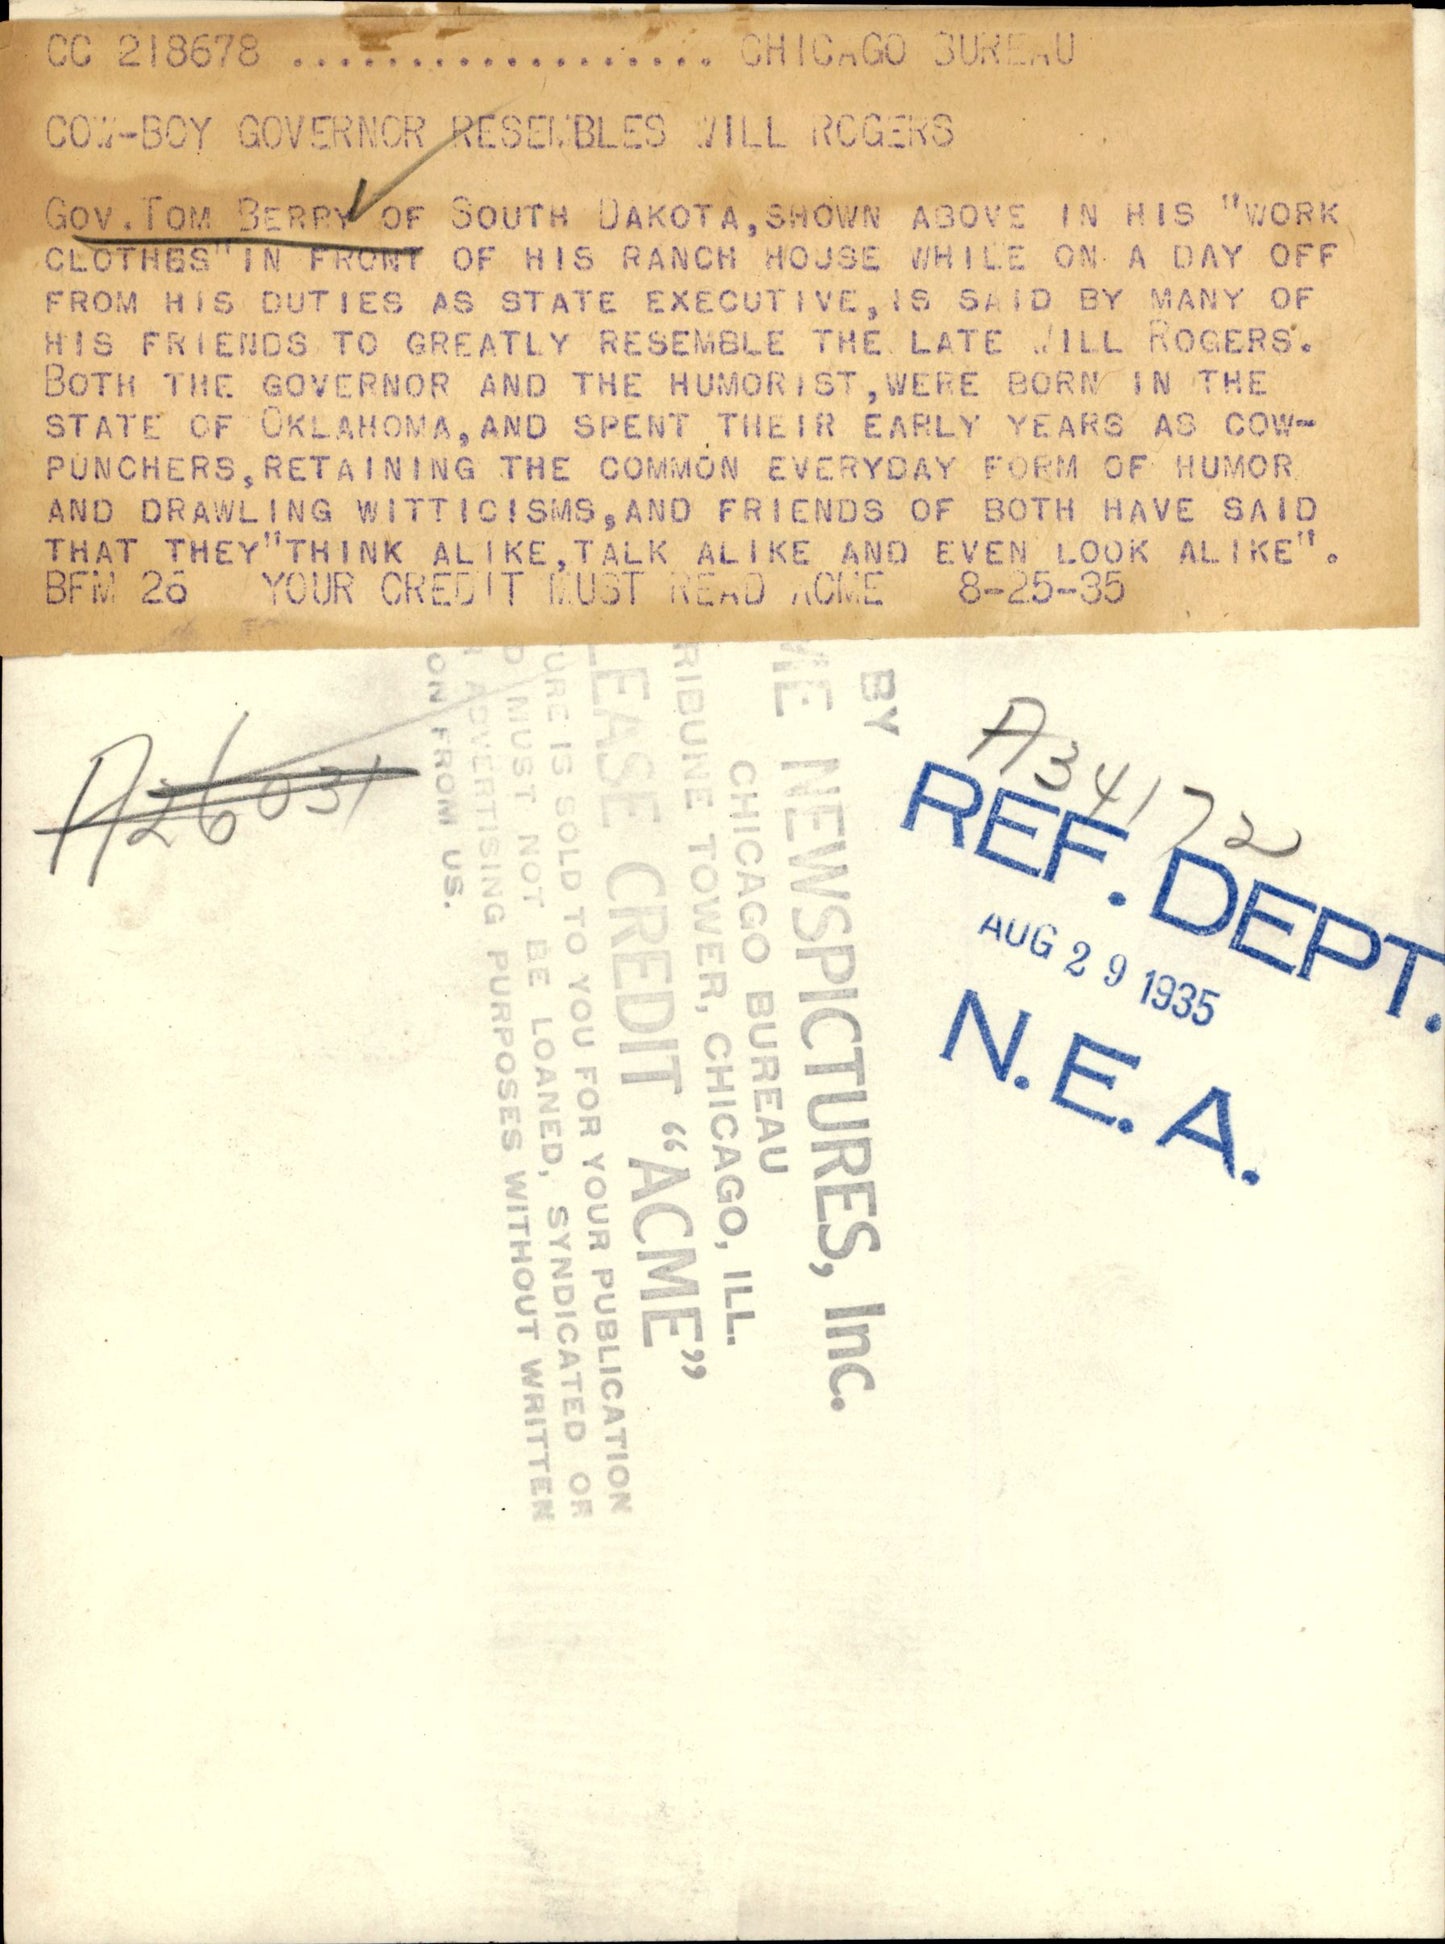 CC 218678 .................. CHICAGO BUREAU
COW-BOY GOVERNOR RESEMBLES WILL ROGERS
GOV.TOM BERRY OF SOUTH DAKOTA,SHOWN ABOVE IN HIS "WORK
CLOTHES"IN FRONT OF HIS RANCH HOUSE WHILE ON A DAY OFF
FROM HIS DUTIES AS STATE EXECUTIVE,IS SAID BY MANY OF
HIS FRIENDS TO GREATLY RESEMBLE THE LATE WILL ROGERS.
BOTH THE GOVERNOR AND THE HUMORIST,WERE BORN IN THE
STATE OF OKLAHOMA,AND SPENT THEIR EARLY YEARS AS COW-
PUNCHERS,RETAINING THE COMMON EVERYDAY FORM OF HUMOR
AND DRAWLING WITTICISMS,AND FRIENDS OF BOTH HAVE SAID
THAT THEY"THINK ALIKE,TALK ALIKE AND EVEN LOOK ALIKE".
BFM 26 YOUR CREDIT MUST READ ACME 8-25-35
A26031
A34172
REF. DEPT.
AUG 29 1935
N.E.A.
BY
ME NEWSPICTURES, Inc.
CHICAGO BUREAU
RIBUNE TOWER, CHICAGO, ILL.
LEASE CREDIT "ACME"
URE IS SOLD TO YOU FOR YOUR PUBLICATION
D MUST NOT BE LOANED, SYNDICATED OR
ADVERTISING PURPOSES WITHOUT WRITTEN
ON FROM US.